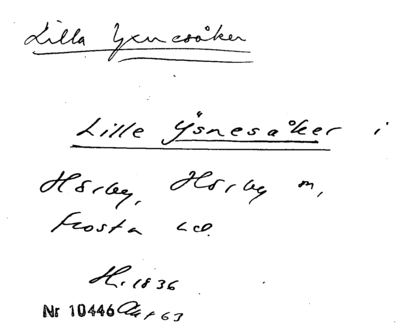 Lilla Ysnesåker
Lille Ysnesåker i
Hörby, Hörby m,
Frosta hd.
H. 1836
Nr 10446 Akt 63